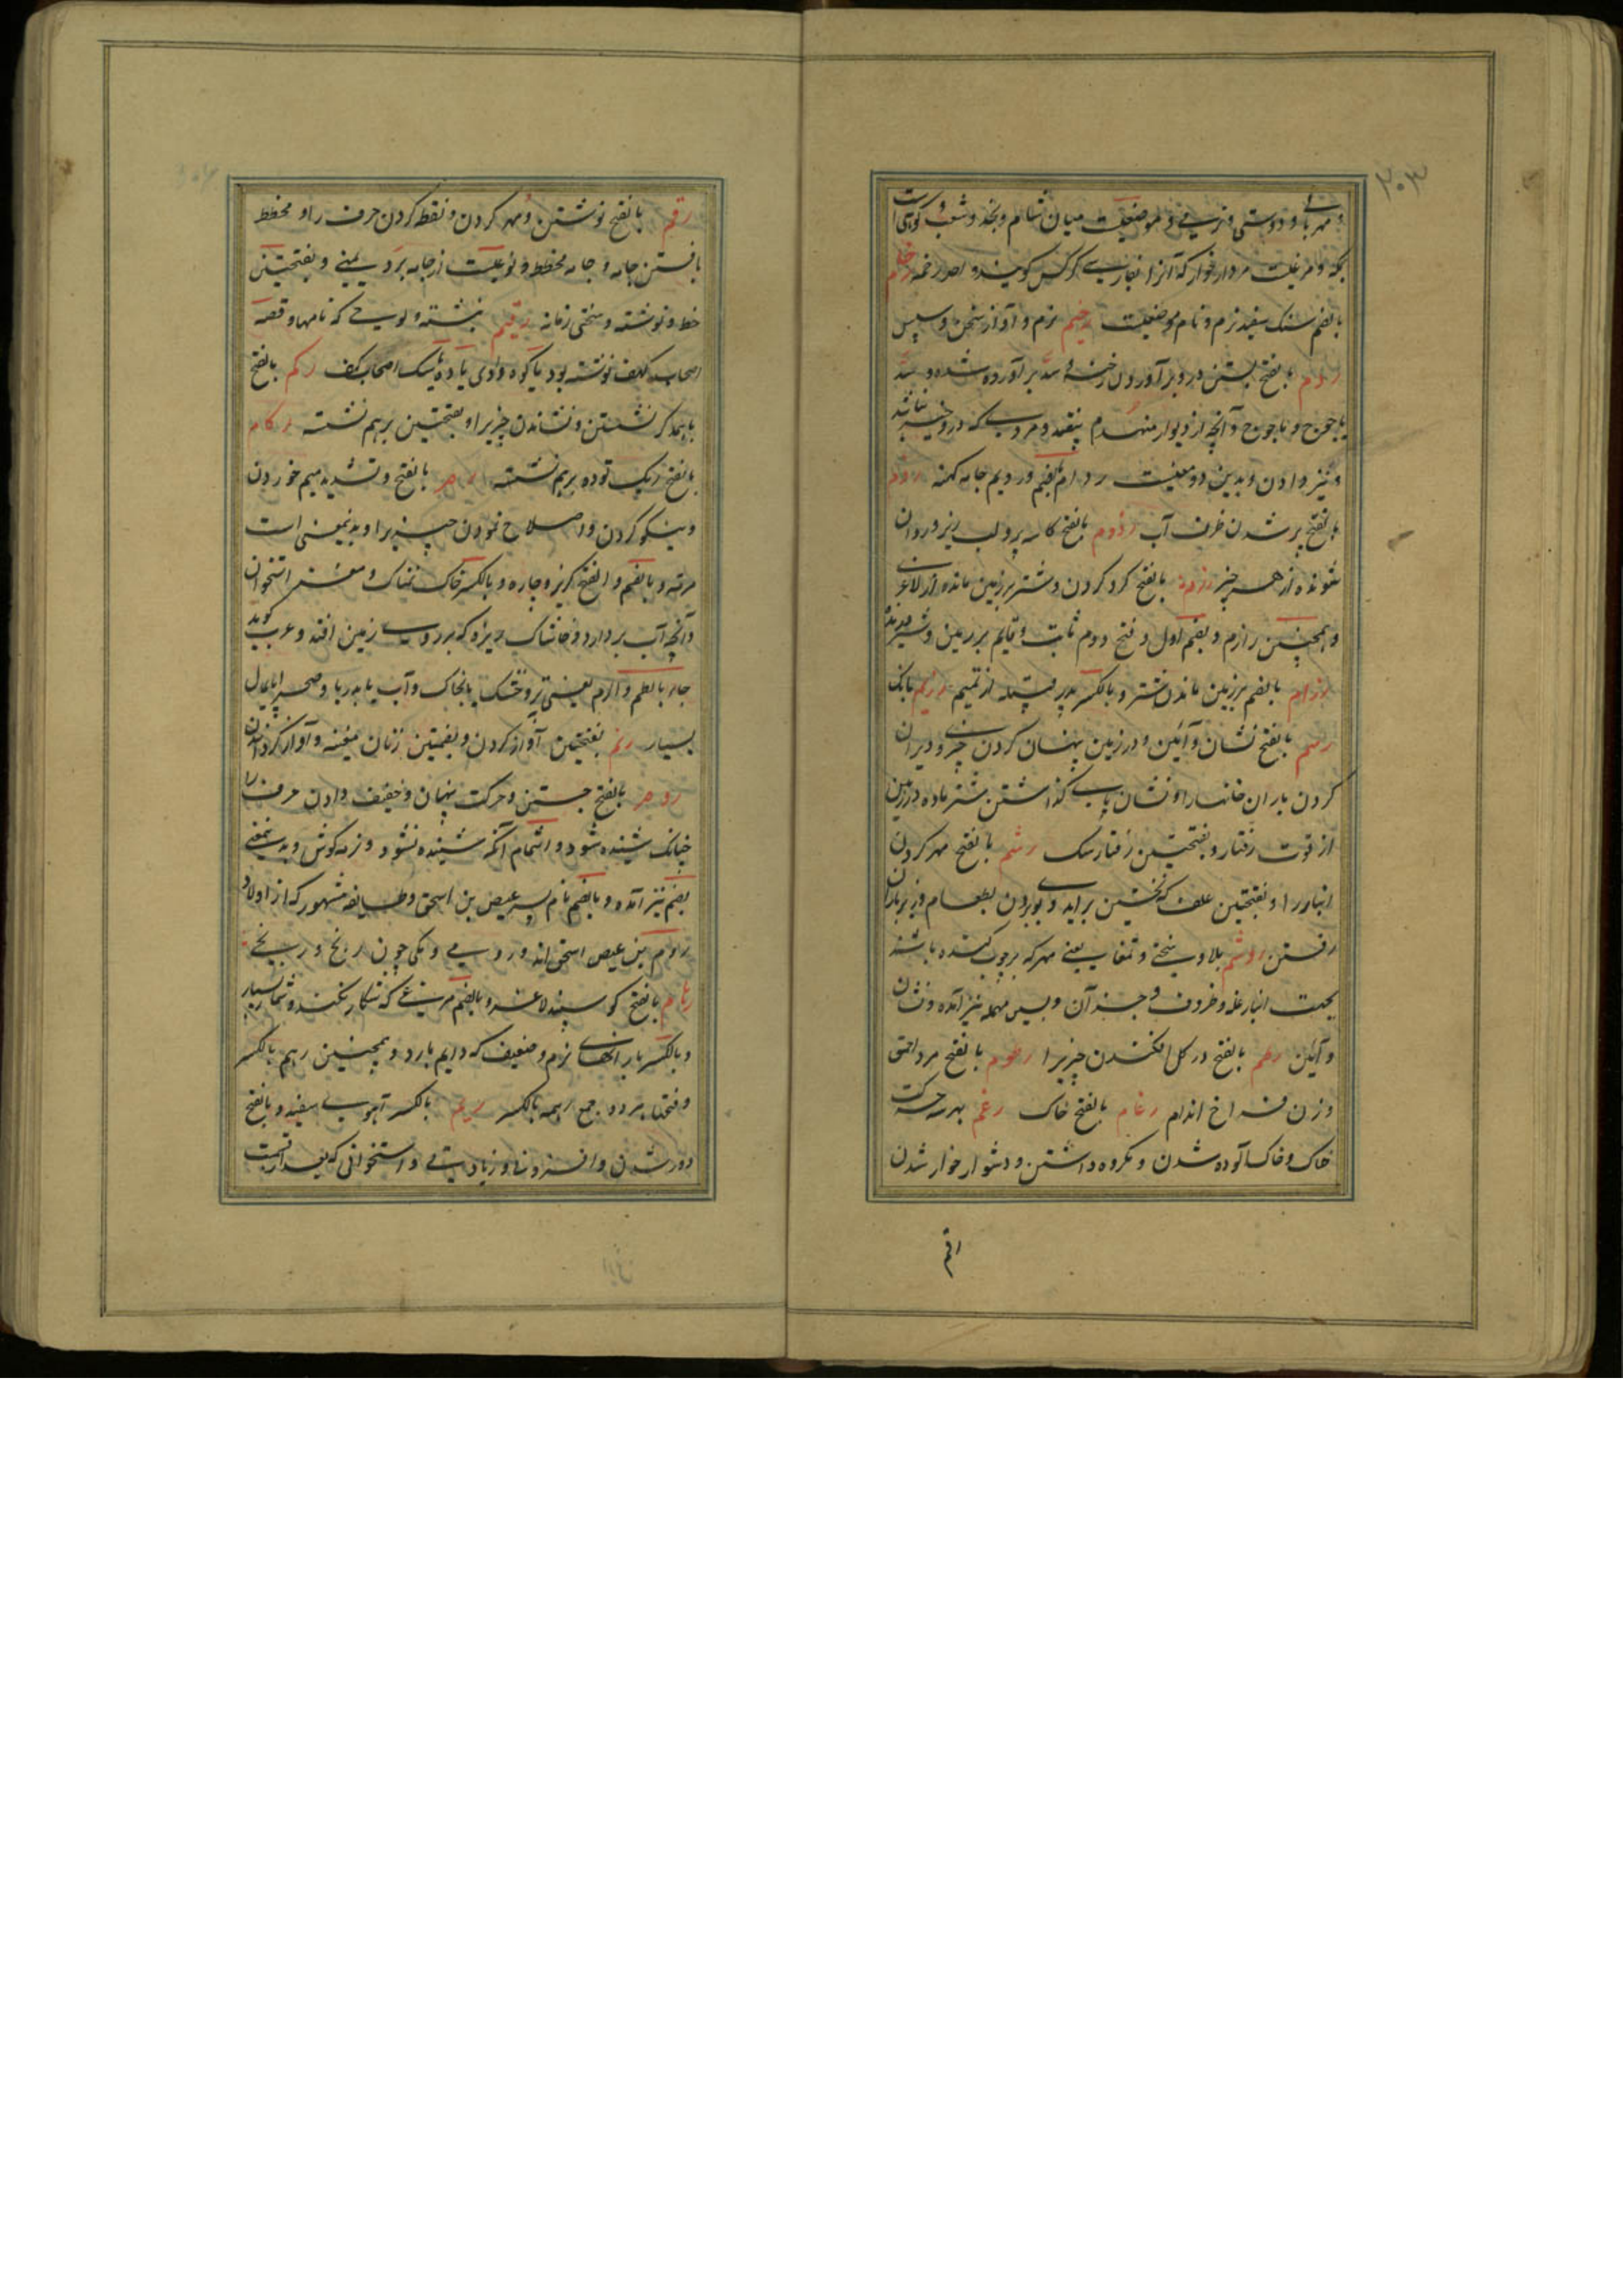 ۳۰۳
و مهربانی و دوستی و نرمی و موضعیست میان شام و نجد و شعب کوهی است
بمکه و مرغیست مردار خوار که آنرا بفارسی کرکس گویند واحد رخمه رخام
بالضم سنگ سفید نرم و نام موضعیست رخیم نرم و آواز سخن و سپس
ردم بالفتح بستن در و برآوردن رخنه و سد برآورده شده و سد
یاجوج و ماجوج و آنچه از دیوار منهدم بیفتد و مردی که درو خیر نباشد
و تیز دادن و بدین دو معنیست ردام بالضم و ردیم جامه کهنه رذم
بالفتح پر شدن ظرف آب رذوم بالفتح کاسه پر و لب ریز و روان
شونده از هر چیز رزم بالفتح گرد کردن و شتر بر زمین مانده از لاغری
و همچنین رازم و بضم اول و فتح دوم ثابت و قایم بر زمین و شیر
رزام بالضم بر زمین ماندن شتر و بالکسر پدر قبیله از تمیم رزیم بانگ
رسم بالفتح نشان و آئین و در زمین پنهان کردن چیزی و ویران
کردن باران خانها را و نشان پای گذاشتن شتر ماده در زمین
از قوت رفتار و بفتحتین رفتار رشم بالفتح مهر کردن
انبار را و بفتحتین علف که نخستین برآید و بوی بردن بطعام و
رفتن روشم بلا و سختی و تمغا یعنی مهر که بر چوب کنده باشند
بجهت انبار غله و ظروف و جز آن و بسین مهمله نیز آمده و نشان
و آئین رطم بالفتح در گل افکندن چیزیرا رطوم بالفتح مرد احمق
و زن فراخ اندام رغام بالفتح خاک رغم بهر سه حرکت
خاک و خاک آلوده شدن و مکروه داشتن و دشوار و خوار شدن
رقم
رقم بالفتح نوشتن و مهر کردن و نقطه کردن حرف را و مخطط
بافتن جامه و جامه مخطط و نوعیست از جامه برد یمنی و بفتحتین
خط و نوشته و سختی زمانه رقیم نبشته و لوحی که نامها و قصه
اصحاب کهف نوشته بود یا کوه و وادی یا ده یا سگ اصحاب کهف رکم بالفتح
باهمدگر نشستن و نشاندن چیزیرا و بفتحتین برهم نشسته رکام
بالفتح ریگ توده برهم نشسته رم بالفتح و تشدید میم خوردن
و نیکو کردن و اصلاح نمودن چیزیرا و بدینمعنی است
مرمة و بالضم و الفتح گریز و چاره و بالکسر خاک نمناک و مغز استخوان
و آنچه آب بردارد و خاشاک ریزه که بر روی زمین افتد و عرب گوید
جاء بالطم و الرم یعنی تر و خشک یا خاک و آب یا بدریا و صحرا یا بمال
بسیار رنم بفتحتین آواز کردن و بضمتین زنان مغنیه و آواز کردن
روم بالفتح جستن و حرکت پنهان و خفیف دادن حرف را
چنانکه شنیده شود و اشمام آنکه شنیده نشود و نرمه گوش و بدینمعنی
بضم نیز آمده و بالضم نام پسر عیص بن اسحق و طایفه مشهور که از اولاد
روم بن عیص اسحق اند و رومی و یکی چون زنج و زنجی
رهام بالفتح گوسپند لاغر و بالضم مرغی که شکار نکند و شمار بسیار
و بالکسر بارانهای نرم و ضعیف که دایم بارد و همچنین رهم بالکسر
و فتحها هر دو جمع رهمه بالکسر ریم بالکسر آهوی سفید و بالفتح
دور شدن و افزونی و زیادتی و استخوانی که بعد از قسمت